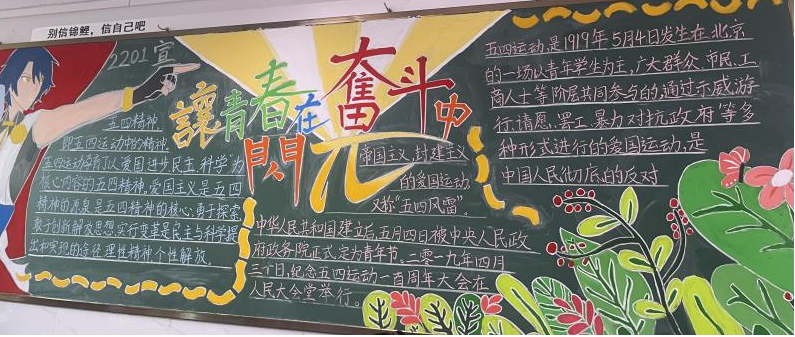 别信锦鲤，信自己吧
2201宣
讓青春在奮斗中
閃光
五四精神
即五四运动中的精神
五四运动孕育了以爱国进步民主,科学为
核心内容的五四精神,爱国主义是五四
精神的源泉是五四精神的核心,勇于探索
敢于创新解放思想,实行变革是民主与科学提
出和实现的途径,理性精神个性解放
五四运动是1919年5月4日发生在北京
的一场以青年学生为主,广大群众、市民、工
商人士等阶层共同参与的,通过示威游
行、请愿、罢工、暴力对抗政府等多
种形式进行的爱国运动,是
中国人民彻底的反对
帝国主义,封建主义
的爱国运动
又称“五四风雷”。
中华人民共和国建立后,五月四日被中央人民政
府政务院正式定为青年节。二零一九年四月
三十日,纪念五四运动一百周年大会在
人民大会堂举行。